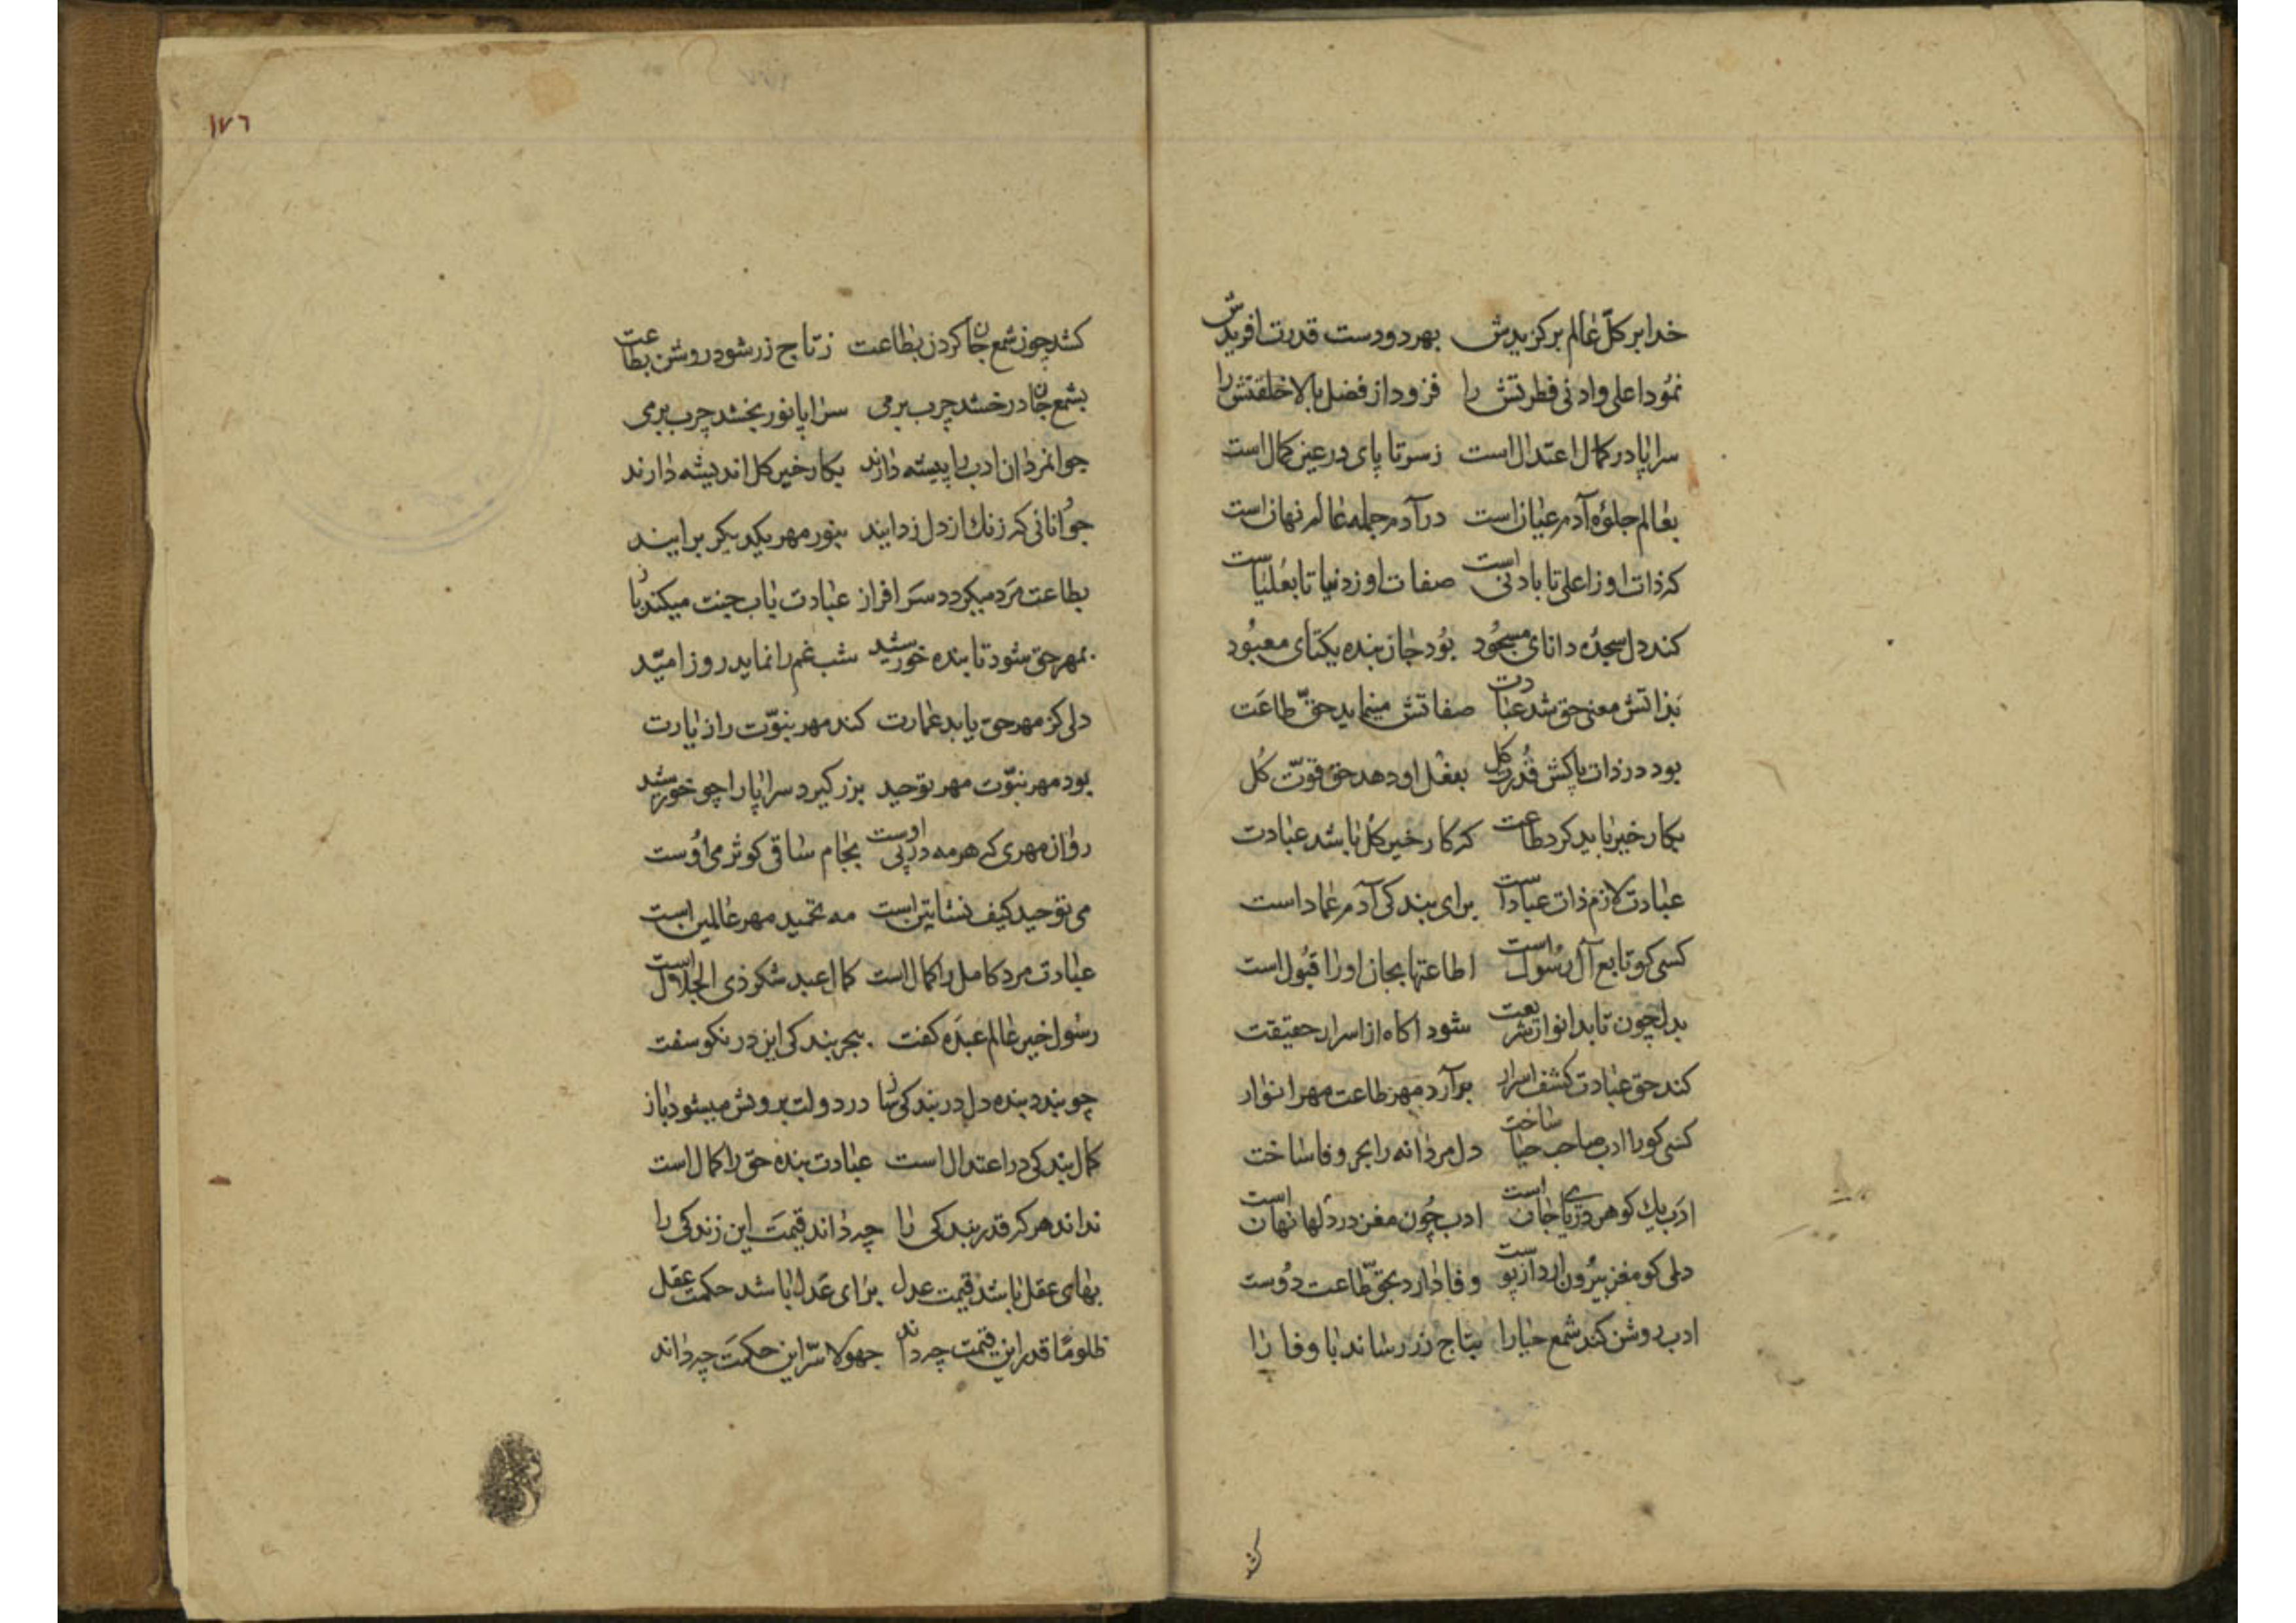 خدا بر کلّ عالم برکزیدش بهر دو دست قدرت افریدش
نمود اعلی و ادنی فطرتش را فزود از فضل بالا خلقتش را
سراپا در کمال اعتدال است ز سر تا پای در عین کمال است
بعالم جلوه آدم عیان است در آدم جمله عالم نهان است
که ذات او ز اعلی تا بادنی است صفات او ز دنیا تا بعلیاست
کند دل سجده دانای مسجود بود جان بنده یکتای معبود
بذاتش معنی حق شد عبادت صفاتش مینماید حقّ طاعت
بود در ذات پاکش قدرت کل بعقل او دهد حق قوّت کل
بکار خیر باید کرد طاعت که کار خیر کل باشد عبادت
عبادت لازم ذات عباد است برای بندکی آدم عماد است
کسی کو تابع آل رسول است اطاعتها بجان او را قبول است
بدل چون تابد انوار شریعت شود اکاه از اسرار حقیقت
کند حق عبادت کشف اسرار برآرد مهر طاعت مهر انوار
کسی کو را ادب صاحب حیا ساخت دل مردانه را بحر وفا ساخت
ادب یک کوهر دریای جان است ادب چون مغز در دلها نهان است
دلی کو مغز بیرون ارد از پوست وفا دارد بحقّ طاعت دوست
ادب روشن کند شمع حیا را بتاج زر رساند با وفا را
کشد
١٧٦
کشد چون شمع جان کردن بطاعت ز تاج زر شود روشن بطاعت
بشمع جان درخشد چرب نرمی سراپا نور بخشد چرب نرمی
جوانمردان ادب را پیشه دارند بکار خیر کل اندیشه دارند
جوانانی که زنك از دل زدایند بنور مهر یکدیکر برایند
بطاعت مرد میکردد سر افراز عبادت باب جنت میکند باز
بمهر حق شود تابنده خورشید شب غم را نماید روز امیّد
دلی کز مهر حق یابد عمارت کند مهر نبوّت را زیارت
بود مهر نبوّت مهر توحید بزر کیرد سراپا را چو خورشید
روان مهری که هر مه در پی اوست بجام ساقی کوثر می اوست
می توحید کیف نشاتین است مه تحمید مهر عالمین است
عبادت مرد کامل را کمال است کمال عبد شکر ذی الجلال است
رسول خیر عالم عبده کفت ببحر بندکی این در نکو سفت
چو بندد بنده دل در بندکی باز در دولت برویش میشود باز
کمال بندکی در اعتدال است عبادت بنده حق را کمال است
نداند هر که قدر بندکی را چه داند قیمت این زندکی را
بهای عقل باشد قیمت عدل برای عدل باشد حکمت عقل
ظلوما قدر این قیمت چه داند جهولا سّر این حکمت چه داند